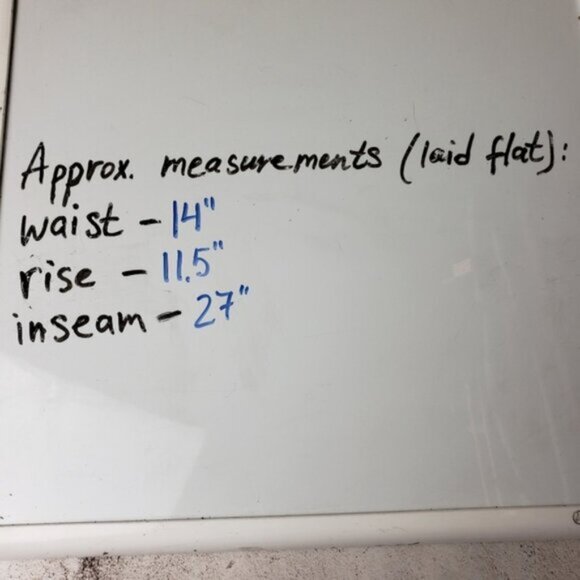 Approx. measurements (laid flat):
waist - 14"
rise - 11.5"
inseam - 27"